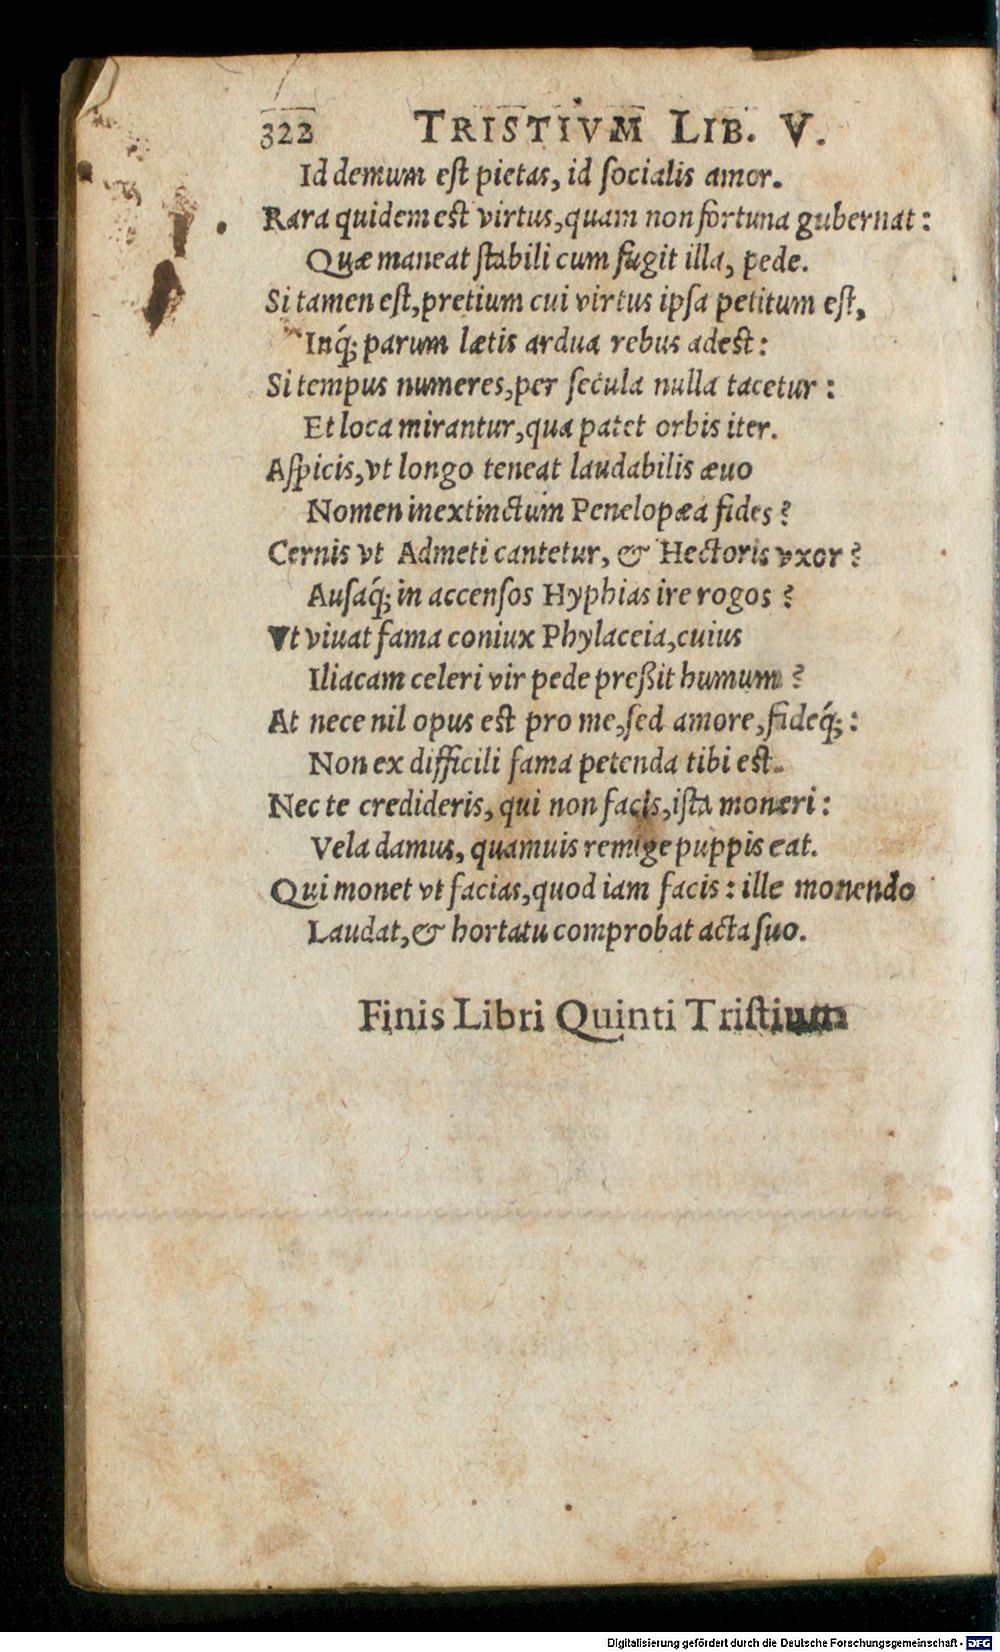 322 TRISTIVM LIB. V.
Id demum est pietas, id ſocialis amor.
Rara quidem est virtus, quam non fortuna gubernat:
Quæ maneat ſtabili cum fugit illa, pede.
Si tamen eſt, pretium cui virtus ipſa petitum eſt,
Inq́; parum lætis ardua rebus adest:
Si tempus numeres, per ſecula nulla tacetur:
Et loca mirantur, qua patet orbis iter.
Aſpicis, vt longo teneat laudabilis æuo
Nomen inextinctum Penelopæa fides?
Cernis vt Admeti cantetur, & Hectoris vxor?
Auſaq́; in accenſos Hyphias ire rogos?
Vt viuat fama coniux Phylaceia, cuius
Iliacam celeri vir pede preßit humum?
At nece nil opus est pro me, ſed amore, fideq́;:
Non ex difficili fama petenda tibi est.
Nec te credideris, qui non facis, iſta moneri:
Vela damus, quamuis remige puppis eat.
Qui monet vt facias, quod iam facis: ille monendo
Laudat, & hortatu comprobat acta ſuo.
Finis Libri Quinti Triſtium
Digitalisierung gefördert durch die Deutsche Forschungsgemeinschaft - DFG